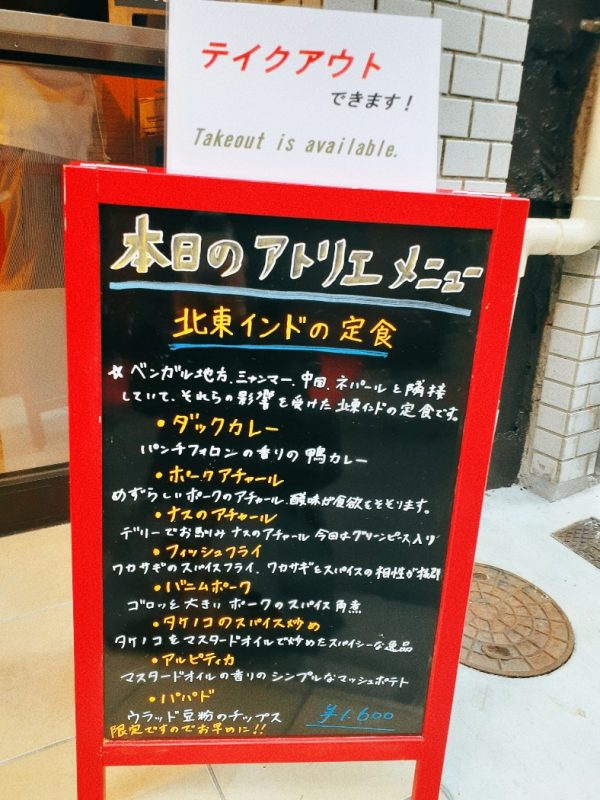 テイクアウト
できます！
Takeout is available.
本日のアトリエメニュー
北東インドの定食
☆ベンガル地方、ミャンマー、中国、ネパールと隣接
していて、それらの影響を受けた北東インドの定食です。
・ダックカレー
パンチフォロンの香りの鴨カレー
・ポークアチャール
めずらしいポークのアチャール、酸味が食欲をそそります。
・ナスのアチャール
デリーでお馴みナスのアチャール 今回はグリーンピース入り
・フィッシュフライ
ワカサギのスパイスフライ、ワカサギとスパイスの相性が抜群
・バニムポーク
ゴロッと大きいポークのスパイス角煮
・タケノコのスパイス炒め
タケノコをマスタードオイルで炒めたスパイシーな逸品
・アルピティカ
マスタードオイルの香りのシンプルなマッシュポテト
・パパド
ウラッド豆粉のチップス
¥1,600
限定ですのでお早めに!!